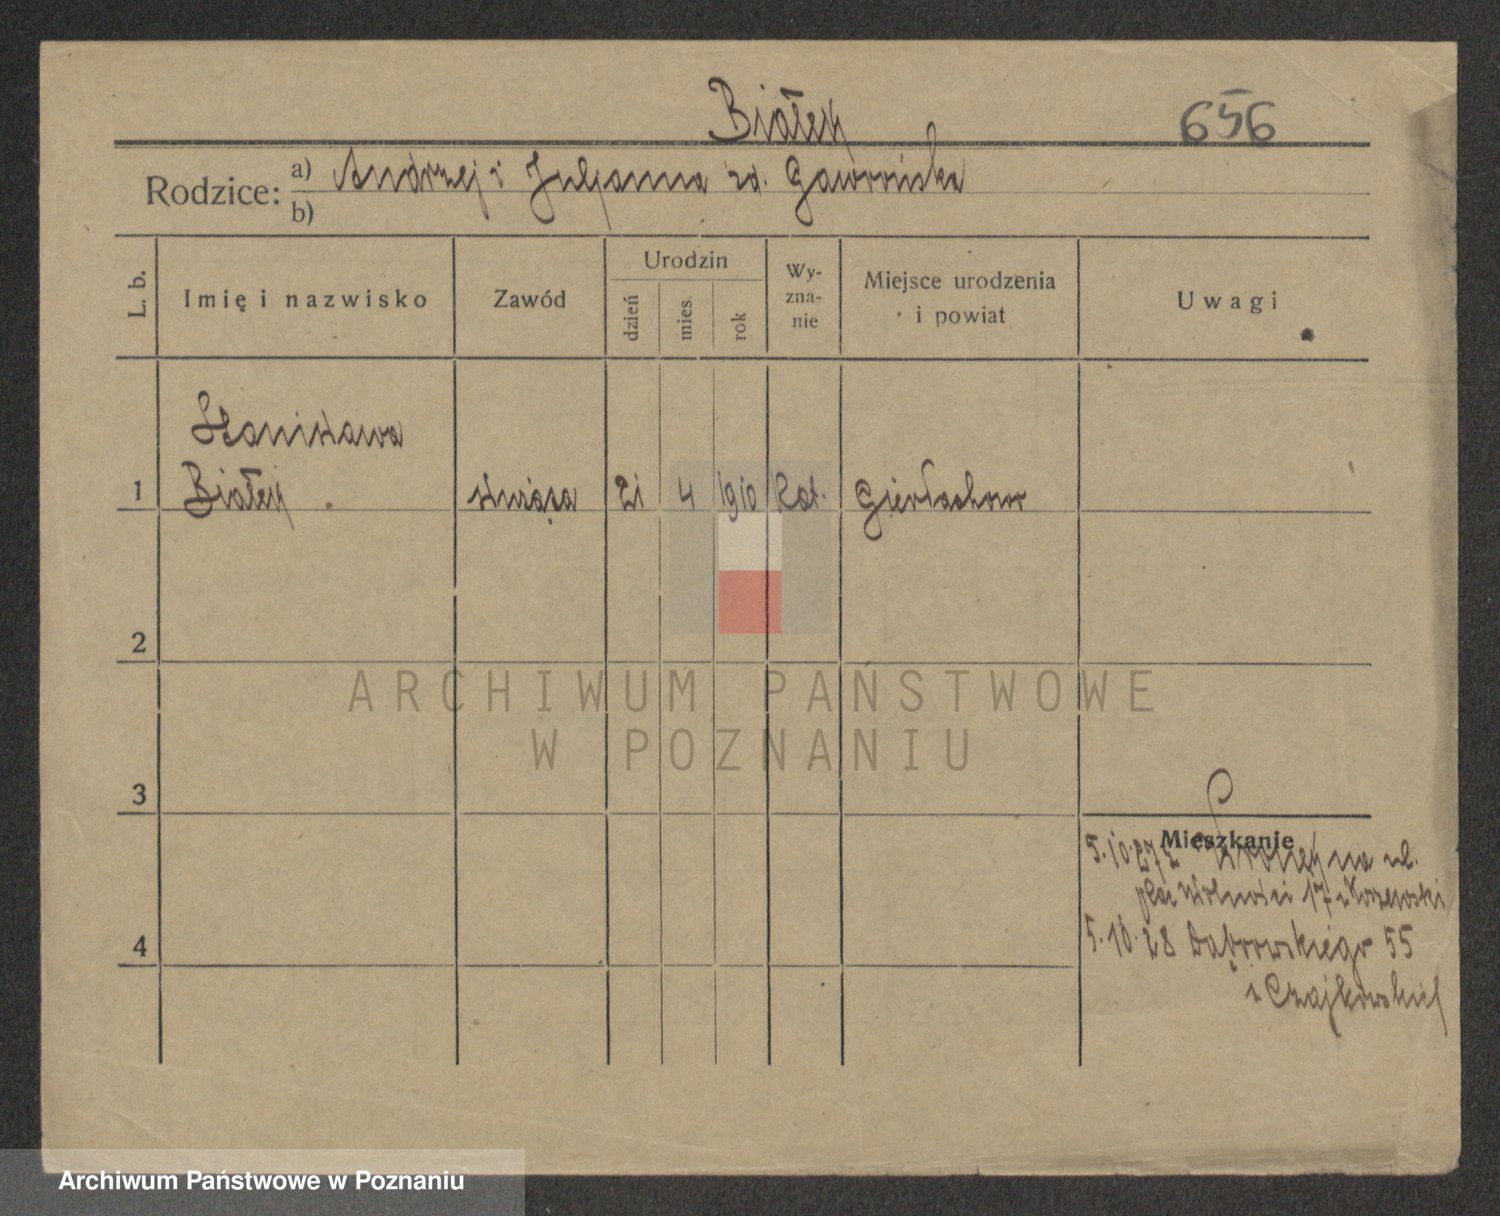 Białek
656
Rodzice: a) Andrzej i Juljanna zd. Gawrońska
b)
L. b.
Imię i nazwisko
Zawód
Urodzin
dzień
mies.
rok
Wy-
zna-
nie
Miejsce urodzenia
i powiat
Uwagi
Stanisława
1 Białek służąca 21 4 1910 Kat. Gierłachowo
2
ARCHIWUM PAŃSTWOWE
W POZNANIU
3
Mieszkanie
5.10.27 z na ul.
plac Wolności 17 u Koszewski
4
5.10.28 Dąbrowskiego 55
u Czajkowskiej
Archiwum Państwowe w Poznaniu